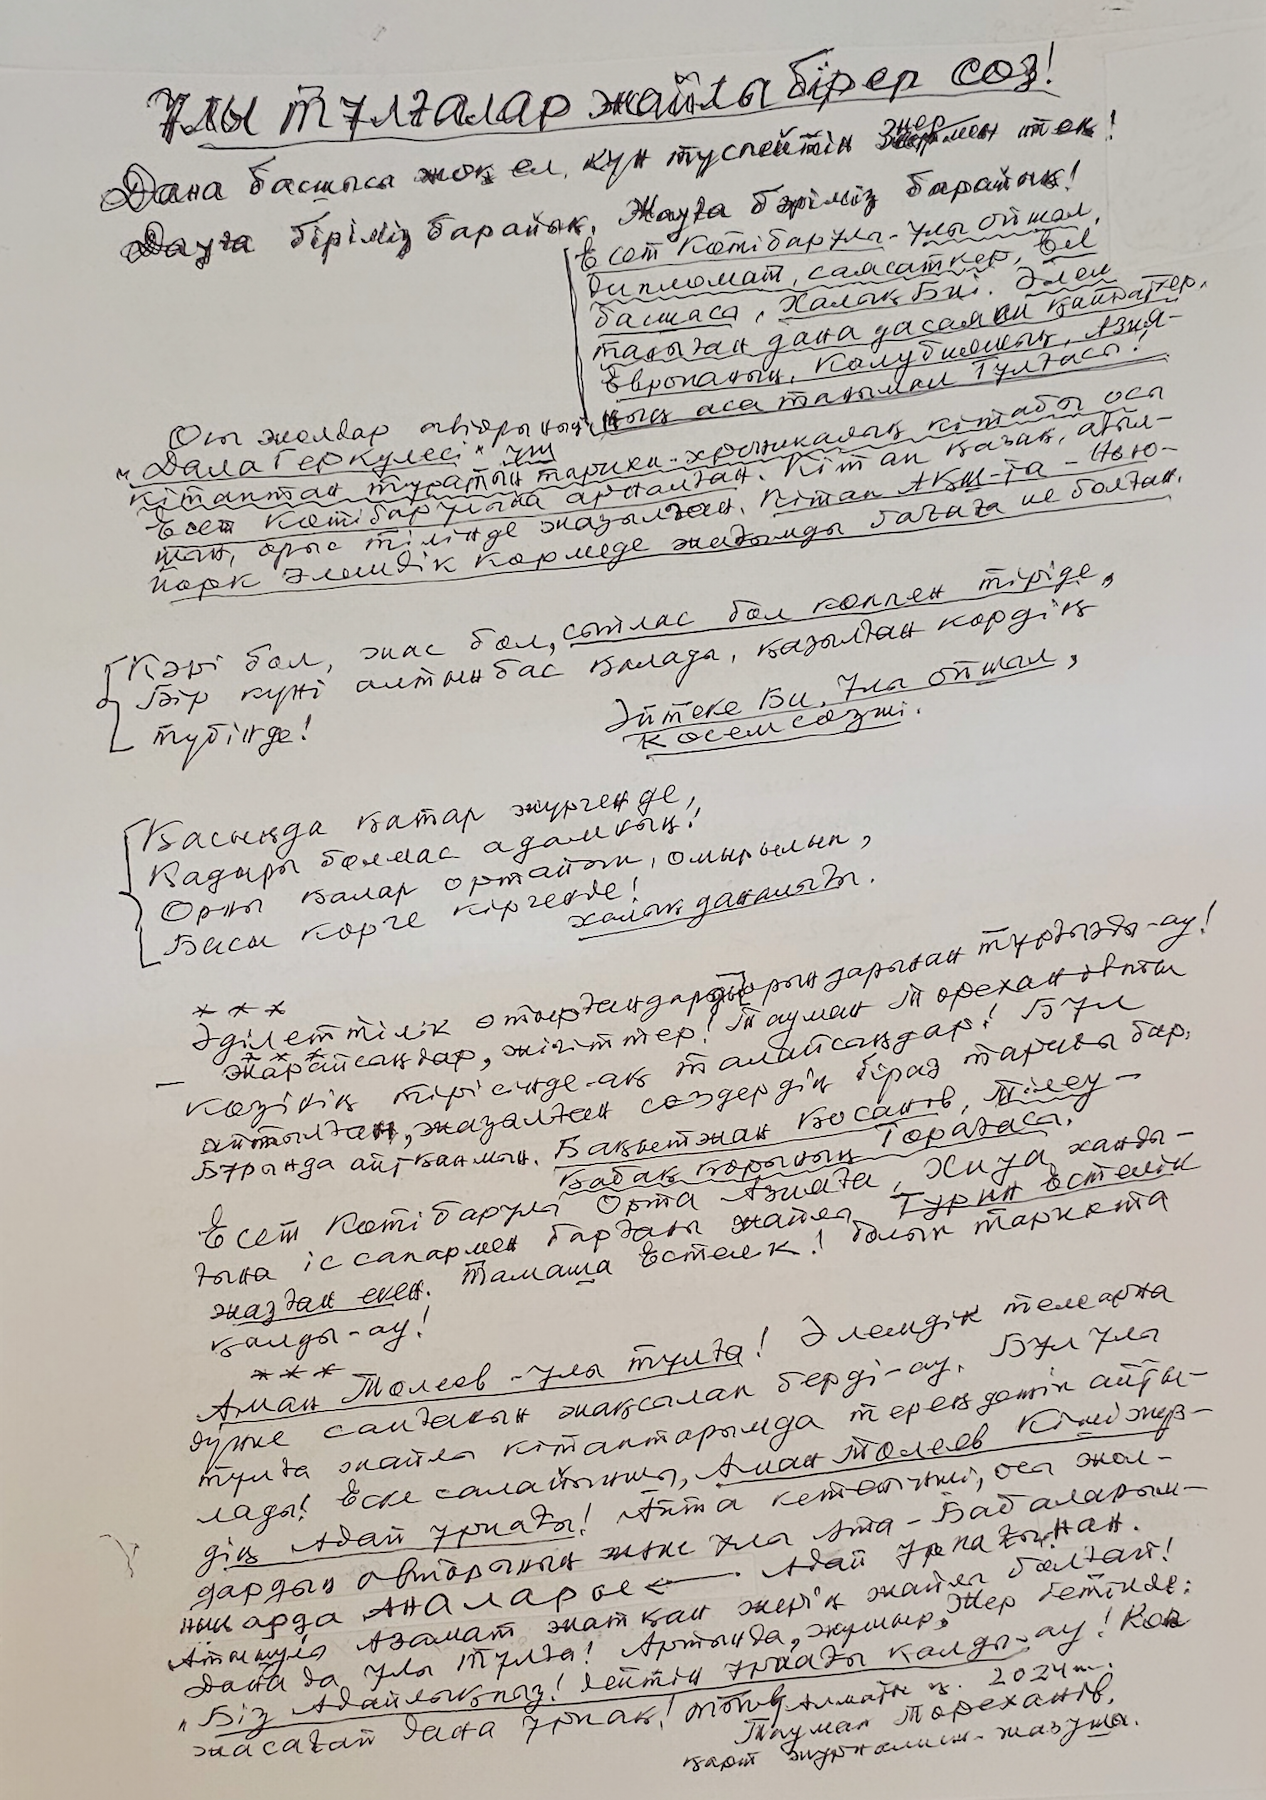 Ұлы тұлғалар жайлы бірер сөз!
Дана басшысы жоқ ел, күн түспейтін жермен тең!
Дауға біріміз барайық, Жауға бәріміз барайық!
Есет Көтібарұлы - Ұлы ойшыл,
дипломат, саясаткер, Ел
басшысы, Халық Биі. Әлем
таныған дана да қайраткер,
Европаның, Колубияның, Азия-
ның аса танымал Тұлғасы!
Осы жолдар авторының
"Дала Геркулесі" үш
кітаптан тұратын тарихи-хроникалық кітабы осы
Есет Көтібарұлына арналған. Кітап қазақ, ағыл-
шын, орыс тілінде жазылған. Кітап АҚШ-та - Нью-
йорк Әлемдік көрмеде жағымды бағаға ие болған.
Кәрі бол, жас бол, сыйлас бол көппен тіріде,
Бір күні алтын бас қалады, қазылған көрдің
түбінде!
Әйтеке Би, Ұлы ойшыл,
Көсем сөзші.
Қасыңда қатар жүргенде,
Қадыры болмас адамның!
Орны қалар ортайып, омырылып,
Басы көрге кіргенде!
халық даналығы.
* * *
Әділеттілік отырғандарды орындарынан тұрғызды-ау!
- Жарайсыңдар, жігіттер! Тауман Төрехановты
көзінің тірісінде-ақ талайсыңдар! Бұл
айтылған, жазылған сөздердің біраз тарихы бар.
Бұрында айтқанмын. Бақытжан Қосанов, Тілеу-
қабақ қорының Төрағасы.
Есет Көтібарұлы Орта Азияға, Хиуа ханды-
ғына іс сапармен барғаны жайлы Турин Естелік
жазған екен. Тамаша Естелік! болып тарихта
қалды-ау!
* * *
Аман Төлеев - ұлы тұлға! Әлемдік телеарна
дүние салғанын жақсалап берді-ау. Бұл ұлы
тұлға жайлы кітаптарымда тереңдетіп айты-
лады! Еске салайыншы, Аман Төлеев Кіші жүз-
дің Адай ұрпағы! Айта кетейінші, осы жол-
дардың авторының және ұлы Ата - Бабаларым-
ның арда Аналары ← Адай ұрпағынан.
Атыңнан Азамат жатқан жерің жайлы болғай!
Дана да ұлы тұлға! Артында, жұмыр Жер бетінде:
"Біз Адайлықпыз! дейтін ұрпағы қалды-ау! Көп
жасағай дана ұрпақ! Алматы қ. 2024 ж.
Тауман Төреханов,
қарт журналист-жазушы.